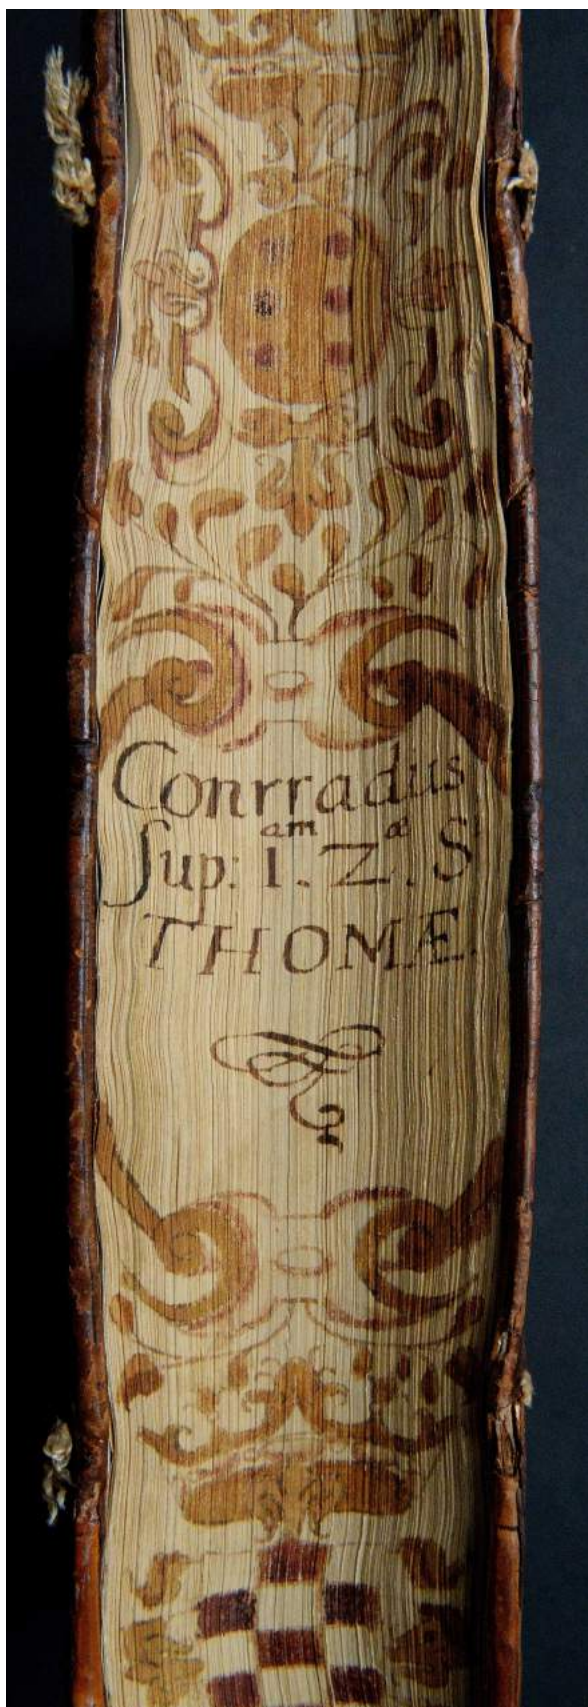 Conrradus
Sup: 1.am Z.æ S.
THOMÆ.